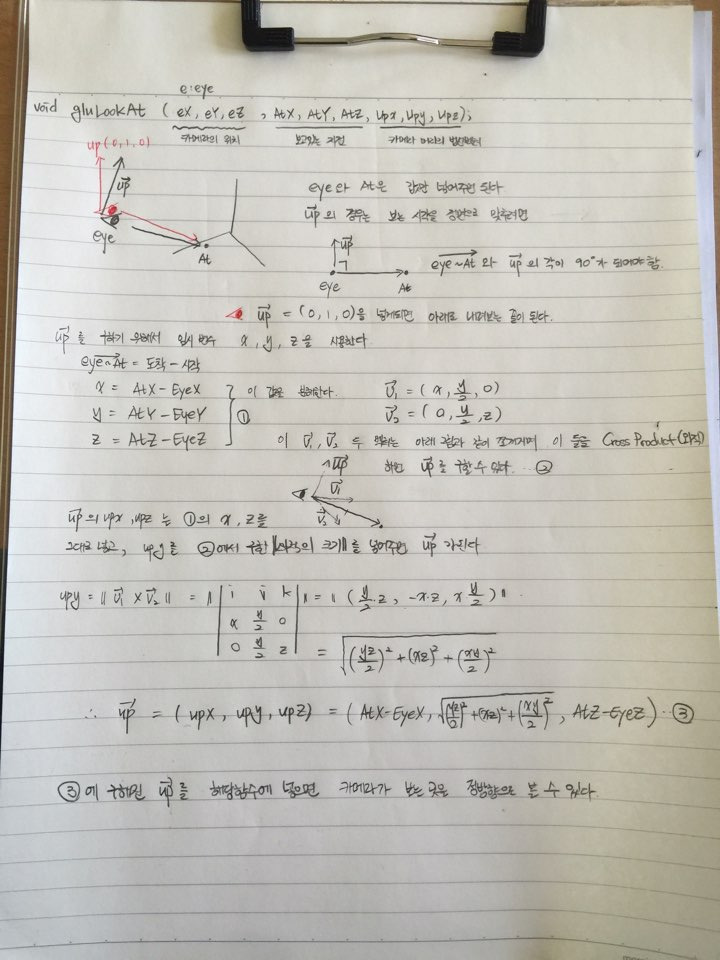 e:eye
void gluLookAt ( eX, eY, eZ , AtX, AtY, AtZ, upx, upy, upz);
카메라의 위치 보고있는 지점 카메라 머리의 법선벡터
up(0,1,0)
up
eye
At
eye와 At은 값만 넣어주면 된다
up의 경우는 보는 시각을 정면으로 맞추려면
up
eye At
eye~At 와 up의 각이 90°가 되어야 함.
up = (0, 1, 0)을 넣게되면 아래로 내려보는 꼴이 된다.
up를 구하기 위해서 임시 변수 x, y, z을 사용한다
eye~At = 도착 - 시작
x = AtX - EyeX
y = AtY - EyeY
z = AtZ - EyeZ
① 이 값을 분해한다.
V₁ = (x, y/2, 0)
V₂ = (0, y/2, z)
이 V₁, V₂ 두 벡터는 아래 그림과 같이 쪼개지며 이 둘을 Cross Product (외적)
하면 up를 구할 수 있다. … ②
up
V₁
V₂
up의 upx, upz 는 ①의 x, z를
그대로 넣고, upy를 ②에서 구한 || 의 크기 || 를 넣어주면 up가 된다
upy = || V₁ × V₂ || = || | i j k | || = || (y/2·z, -x·z, x y/2) ||
x y/2 0
0 y/2 z
= √((yz/2)² + (xz)² + (xy/2)²)
∴ up = (upX, upy, upZ) = (AtX-EyeX, √((yz/2)²+(xz)²+(xy/2)²), AtZ-EyeZ) … ③
③에 구해진 up를 해당함수에 넣으면 카메라가 보는 곳은 정방향으로 볼 수 있다.